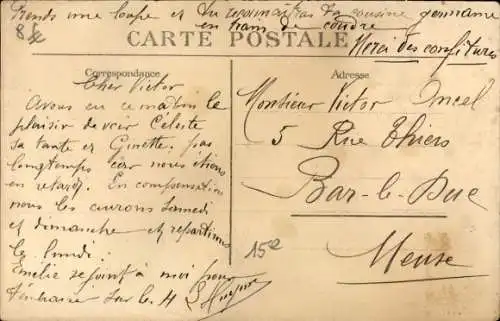 Prends une loupe et tu reconnaitras ta cousine germaine
en train de coudre
CARTE POSTALE
Merci des confitures
Correspondance
Cher Victor
Avons eu ce matin le
plaisir de voir Céleste
sa tante et Ginette. pas
longtemps car nous étions
en retard. En compensation
nous les aurons samedi
et dimanche et repartirons
le lundi.
Emélie se joint à moi pour
sur le 4
Adresse
Monsieur Victor
5 Rue Thiers
Bar-le-Duc
Meuse
15e